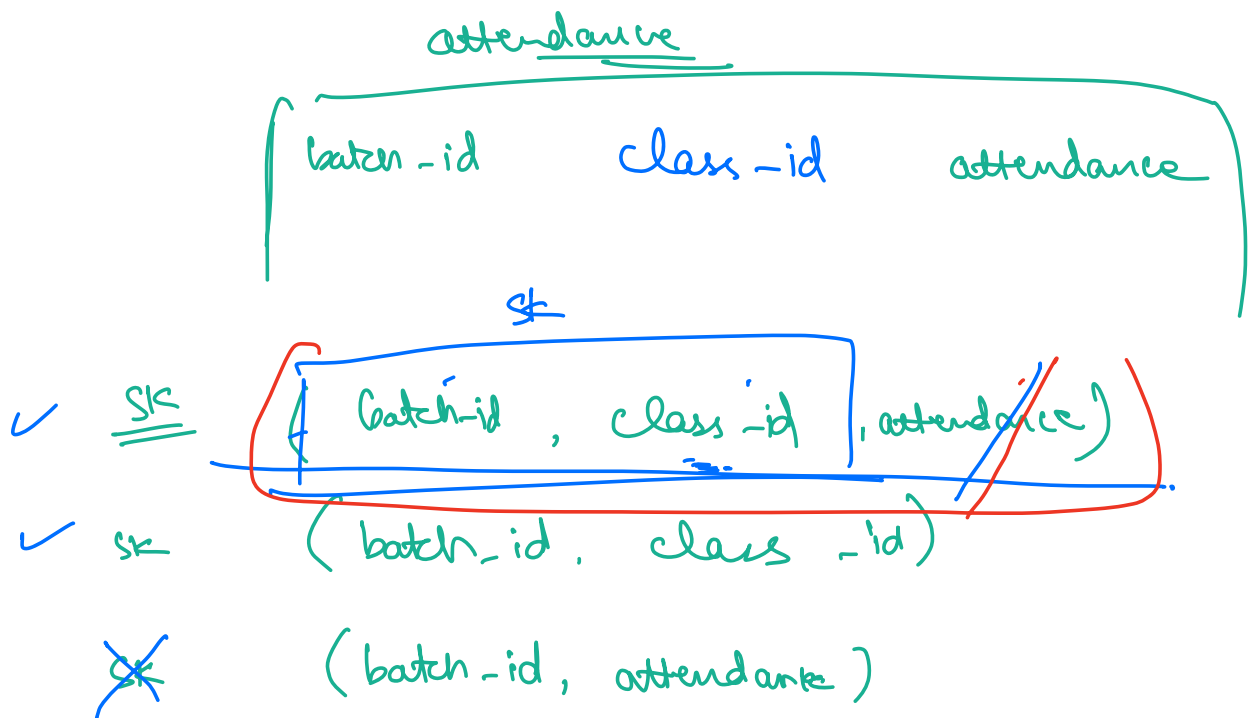 attendance
batch_id class_id attendance
SK
SK (batch_id, class_id, attendance)
SK (batch_id, class_id)
SK (batch_id, attendance)